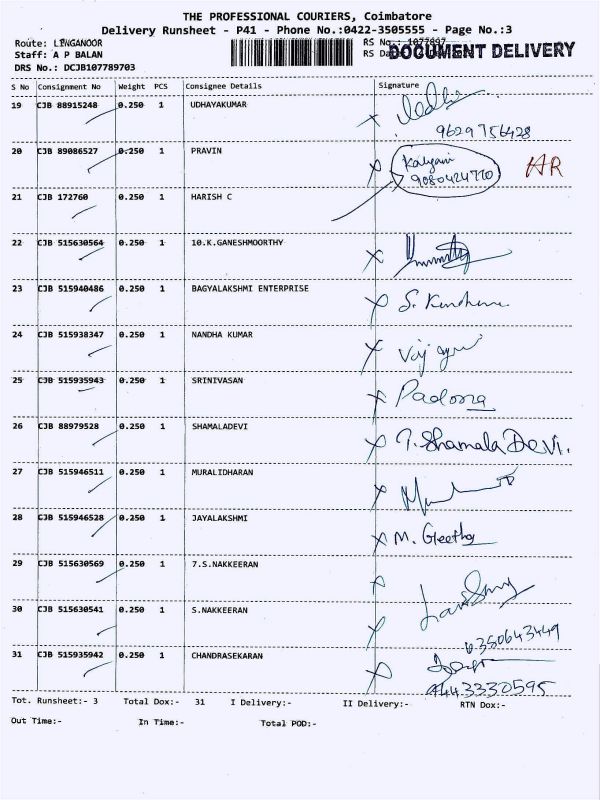 THE PROFESSIONAL COURIERS, Coimbatore
Delivery Runsheet - P41 - Phone No.:0422-3505555 - Page No.:3
Route: LINGANOOR RS No.: 1077897
Staff: A P BALAN RS Da DOCUMENT DELIVERY
DRS No.: DCJB107789703
S No Consignment No Weight PCS Consignee Details Signature
19 CJB 88915248 0.250 1 UDHAYAKUMAR
9629756428
20 CJB 89086527 0.250 1 PRAVIN Kalyani
9080424770 AR
21 CJB 172760 0.250 1 HARISH C
22 CJB 515630564 0.250 1 10.K.GANESHMOORTHY
23 CJB 515940486 0.250 1 BAGYALAKSHMI ENTERPRISE S.
24 CJB 515938347 0.250 1 NANDHA KUMAR
25 CJB 515935943 0.250 1 SRINIVASAN
26 CJB 88979528 0.250 1 SHAMALADEVI T. Shamala Devi.
27 CJB 515946511 0.250 1 MURALIDHARAN
28 CJB 515946528 0.250 1 JAYALAKSHMI M. Geetha
29 CJB 515630569 0.250 1 7.S.NAKKEERAN
30 CJB 515630541 0.250 1 S.NAKKEERAN
6350643449
31 CJB 515935942 0.250 1 CHANDRASEKARAN
9443330595
Tot. Runsheet:- 3 Total Dox:- 31 I Delivery:- II Delivery:- RTN Dox:-
Out Time:- In Time:- Total POD:-